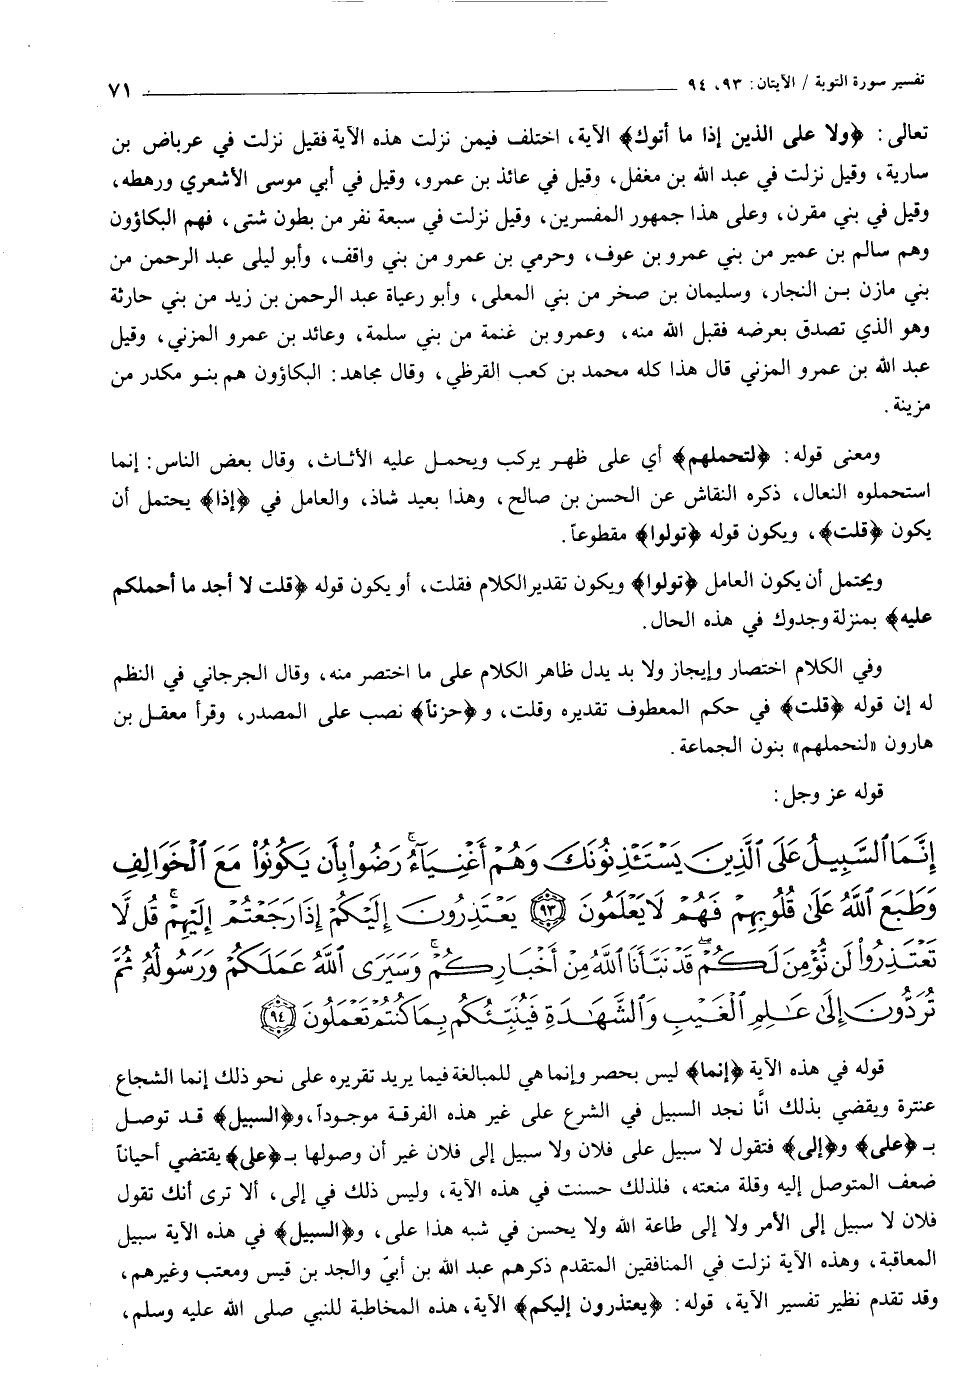 تفسير سورة التوبة / الآيتان: ٩٣، ٩٤ ــــــــــ ٧١
تعالى: ﴿ولا على الذين إذا ما أتوك﴾ الآية، اختلف فيمن نزلت هذه الآية فقيل نزلت في عرباض بن
سارية، وقيل نزلت في عبد الله بن مغفل، وقيل في عائذ بن عمرو، وقيل في أبي موسى الأشعري ورهطه،
وقيل في بني مقرن، وعلى هذا جمهور المفسرين، وقيل نزلت في سبعة نفر من بطون شتى، فهم البكاؤون
وهم سالم بن عمير من بني عمرو بن عوف، وحرمي بن عمرو من بني واقف، وأبو ليلى عبد الرحمن من
بني مازن بن النجار، وسليمان بن صخر من بني المعلى، وأبو رعياة عبد الرحمن بن زيد من بني حارثة
وهو الذي تصدق بعرضه فقبل الله منه، وعمرو بن غنمة من بني سلمة، وعائد بن عمرو المزني، وقيل
عبد الله بن عمرو المزني قال هذا كله محمد بن كعب القرظي، وقال مجاهد: البكاؤون هم بنو مكدر من
مزينة.
ومعنى قوله: ﴿لتحملهم﴾ أي على ظهر يركب ويحمل عليه الأثاث، وقال بعض الناس: إنما
استحملوه النعال، ذكره النقاش عن الحسن بن صالح، وهذا بعيد شاذ، والعامل في ﴿إذا﴾ يحتمل أن
يكون ﴿قلت﴾، ويكون قوله ﴿تولوا﴾ مقطوعاً.
ويحتمل أن يكون العامل ﴿تولوا﴾ ويكون تقدير الكلام فقلت، أو يكون قوله ﴿قلت لا أجد ما أحملكم
عليه﴾ بمنزلة وجدوك في هذه الحال.
وفي الكلام اختصار وإيجاز ولا بد يدل ظاهر الكلام على ما اختصر منه، وقال الجرجاني في النظم
له إن قوله ﴿قلت﴾ في حكم المعطوف تقديره وقلت، و﴿حزناً﴾ نصب على المصدر، وقرأ معقل بن
هارون «لنحملهم» بنون الجماعة.
قوله عز وجل:
إِنَّمَا ٱلسَّبِيلُ عَلَى ٱلَّذِينَ يَسْتَـْٔذِنُونَكَ وَهُمْ أَغْنِيَآءُ ۚ رَضُوا۟ بِأَن يَكُونُوا۟ مَعَ ٱلْخَوَالِفِ
وَطَبَعَ ٱللَّهُ عَلَىٰ قُلُوبِهِمْ فَهُمْ لَا يَعْلَمُونَ ﴿٩٣﴾ يَعْتَذِرُونَ إِلَيْكُمْ إِذَا رَجَعْتُمْ إِلَيْهِمْ ۚ قُل لَّا
تَعْتَذِرُوا۟ لَن نُّؤْمِنَ لَكُمْ ۖ قَدْ نَبَّأَنَا ٱللَّهُ مِنْ أَخْبَارِكُمْ ۚ وَسَيَرَى ٱللَّهُ عَمَلَكُمْ وَرَسُولُهُۥ ثُمَّ
تُرَدُّونَ إِلَىٰ عَـٰلِمِ ٱلْغَيْبِ وَٱلشَّهَـٰدَةِ فَيُنَبِّئُكُم بِمَا كُنتُمْ تَعْمَلُونَ ﴿٩٤﴾
قوله في هذه الآية ﴿إنما﴾ ليس بحصر وإنما هي للمبالغة فيما يريد تقريره على نحو ذلك إنما الشجاع
عنترة ويقضي بذلك انَّا نجد السبيل في الشرع على غير هذه الفرقة موجوداً، و﴿السبيل﴾ قد توصل
بـ ﴿على﴾ و﴿إلى﴾ فتقول لا سبيل على فلان ولا سبيل إلى فلان غير أن وصولها بـ﴿على﴾ يقتضي أحياناً
ضعف المتوصل إليه وقلة منعته، فلذلك حسنت في هذه الآية، وليس ذلك في إلى، ألا ترى أنك تقول
فلان لا سبيل إلى الأمر ولا إلى طاعة الله ولا يحسن في شبه هذا على، و﴿السبيل﴾ في هذه الآية سبيل
المعاقبة، وهذه الآية نزلت في المنافقين المتقدم ذكرهم عبد الله بن أبيّ والجد بن قيس ومعتب وغيرهم،
وقد تقدم نظير تفسير الآية، قوله: ﴿يعتذرون إليكم﴾ الآية، هذه المخاطبة للنبي صلى الله عليه وسلم،